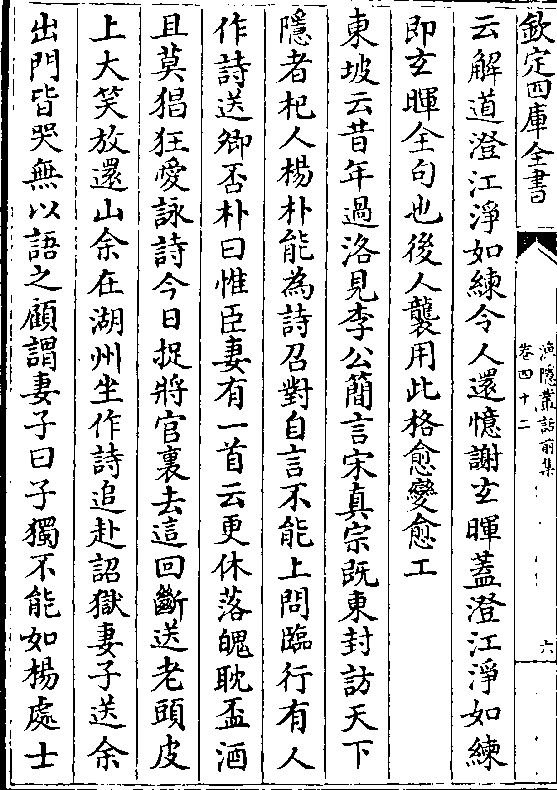 欽定四庫全書
漁隱叢話前集
卷四十二
六
云解道澄江淨如練令人還憶謝玄暉蓋澄江淨如練
即玄暉全句也後人襲用此格愈變愈工
東坡云昔年過洛見李公簡言宋真宗既東封訪天下
隱者杞人楊朴能為詩召對自言不能上問臨行有人
作詩送卿否朴曰惟臣妻有一首云更休落魄耽盃酒
且莫猖狂愛詠詩今日捉將官裏去這回斷送老頭皮
上大笑放還山余在湖州坐作詩追赴詔獄妻子送余
出門皆哭無以語之顧謂妻子曰子獨不能如楊處士